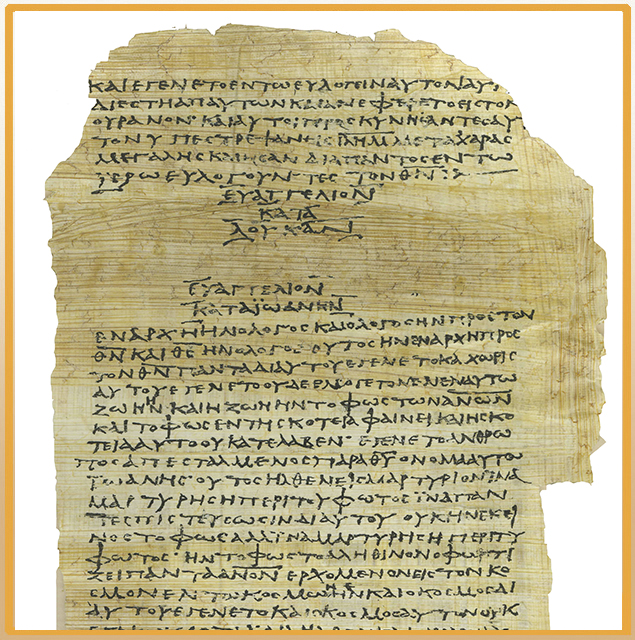 ΚΑΙΕΓΕΝΕΤΟΕΝΤΩΕΥΛΟΓΕΙΝΑΥΤΟΝΑΥΤ
ΔΙΕϹΤΗΑΠΑΥΤΩΝΚΑΙΑΝΕΦΕΡΕΤΟΕΙϹΤΟΝ
ΟΥΡΑΝΟΝ· ΚΑΙΑΥΤΟΙΠΡΟϹΚΥΝΗϹΑΝΤΕϹΑΥ
ΤΟΝΥΠΕϹΤΡΕΨΑΝΕΙϹΙ̅Λ̅Η̅Μ̅ΜΕΤΑΧΑΡΑϹ
ΜΕΓΑΛΗϹΚΑΙΗϹΑΝΔΙΑΠΑΝΤΟϹΕΝΤΩ
ΪΕΡΩΕΥΛΟΓΟΥΝΤΕϹΤΟΝΘ̅Ν̅
ΕΥΑΓΓΕΛΙΟΝ
ΚΑΤΑ
ΛΟΥΚΑΝ
ΕΥΑΓΓΕΛΙΟΝ
ΚΑΤΑΪΩΑΝΗΝ
ΕΝΑΡΧΗΗΝΟΛΟΓΟϹΚΑΙΟΛΟΓΟϹΗΝΠΡΟϹΤΟΝ
Θ̅Ν̅ΚΑΙΘ̅Ϲ̅ΗΝΟΛΟΓΟϹΟΥΤΟϹΗΝΕΝΑΡΧΗΠΡΟϹ
ΤΟΝΘ̅Ν̅ΠΑΝΤΑΔΙΑΥΤΟΥΕΓΕΝΕΤΟΚΑΙΧΩΡΙϹ
ΑΥΤΟΥΕΓΕΝΕΤΟΟΥΔΕΕΝΟΓΕΓΟΝΕΝΕΝΑΥΤΩ
ΖΩΗΗΝΚΑΙΗΖΩΗΗΝΤΟΦΩϹΤΩΝΑ̅Ν̅Ω̅Ν̅
ΚΑΙΤΟΦΩϹΕΝΤΗϹΚΟΤΕΙΑΦΑΙΝΕΙΚΑΙΗϹΚΟ
ΤΕΙΑΑΥΤΟΟΥΚΑΤΕΛΑΒΕΝ· ΕΓΕΝΕΤΟΑΝΘΡΩ
ΠΟϹΑΠΕϹΤΑΛΜΕΝΟϹΠΑΡΑΘ̅Υ̅ΟΝΟΜΑΑΥΤΩ
ΪΩΑΝΗϹ· ΟΥΤΟϹΗΛΘΕΝΕΙϹΜΑΡΤΥΡΙΟΝΪΝΑ
ΜΑΡΤΥΡΗϹΗΠΕΡΙΤΟΥΦΩΤΟϹΪΝΑΠΑΝ
ΤΕϹΠΙϹΤΕΥϹΩϹΙΝΔΙΑΥΤΟΥ ΟΥΚΗΝΕΚΕΙ
ΝΟϹΤΟΦΩϹΑΛΛΪΝΑΜΑΡΤΥΡΗϹΗΠΕΡΙΤΟΥ
ΦΩΤΟϹ· ΗΝΤΟΦΩϹΤΟΑΛΗΘΙΝΟΝΟΦΩΤΙ
ΖΕΙΠΑΝΤΑΑ̅Ν̅Ο̅Ν̅ ΕΡΧΟΜΕΝΟΝΕΙϹΤΟΝΚΟ
ϹΜΟΝΕΝΤΩΚΟϹΜΩΗΝΚΑΙΟΚΟϹΜΟϹΔΙ
ΑΥΤΟΥΕΓΕΝΕΤΟΚΑΙΟΚΟϹΜΟϹΑΥΤΟΝΟΥΚ